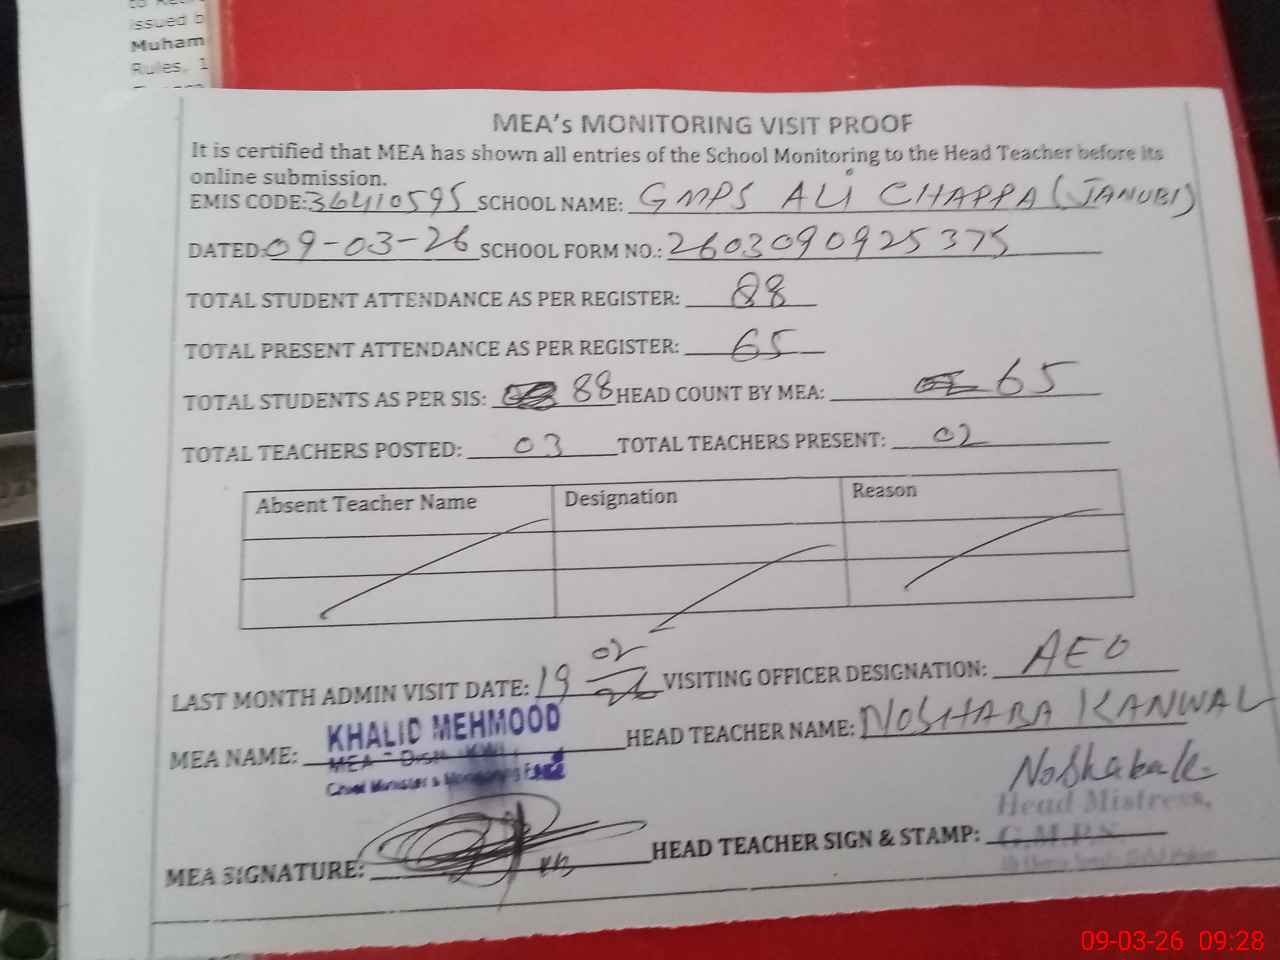 issued b
Muham
Rules, 1
MEA's MONITORING VISIT PROOF
It is certified that MEA has shown all entries of the School Monitoring to the Head Teacher before its
online submission.
EMIS CODE: 36410595 SCHOOL NAME: GMPS ALI CHAPPA (JANUBI)
DATED: 09-03-26 SCHOOL FORM NO.: 2603090925375
TOTAL STUDENT ATTENDANCE AS PER REGISTER: 88
TOTAL PRESENT ATTENDANCE AS PER REGISTER: 65
TOTAL STUDENTS AS PER SIS: 88 HEAD COUNT BY MEA: 65
TOTAL TEACHERS POSTED: 03 TOTAL TEACHERS PRESENT: 02
Absent Teacher Name Designation Reason
LAST MONTH ADMIN VISIT DATE: 19 02 26 VISITING OFFICER DESIGNATION: AEO
MEA NAME: KHALID MEHMOOD HEAD TEACHER NAME: NOSHABA KANWAL
MEA
Chief Minister's Monitoring
Head Mistress,
MEA SIGNATURE: HEAD TEACHER SIGN & STAMP: G.M.P.S
09-03-26 09:28